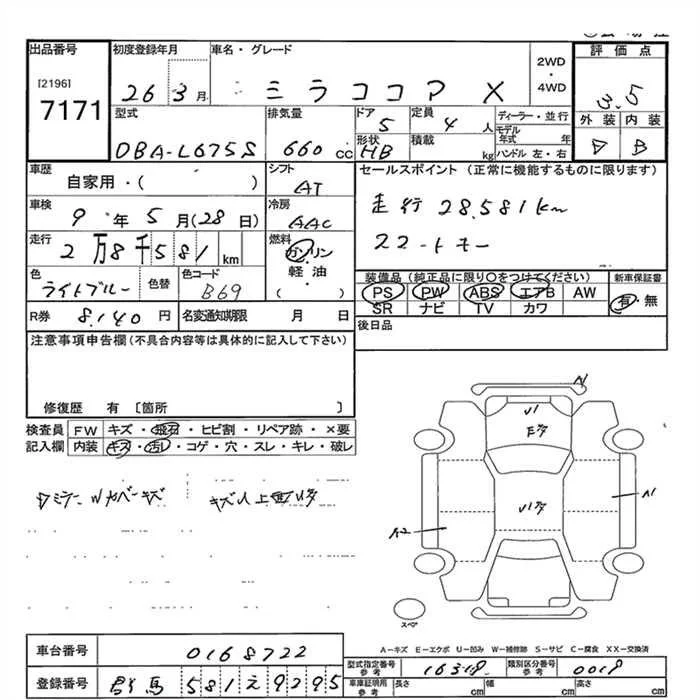 出品番号 初度登録年月 車名・グレード 評価点
[2196]
7171
26 3月 ミラココア X
2WD・4WD
3.5
型式 排気量 ドア 定員 ディーラー・並行
DBA-L675S 660 cc 5 4 人
形状 積載 モデル年式 年
HB kg ハンドル 左・右
外装 内装
D B
車歴 シフト セールスポイント(正常に機能するものに限ります)
自家用・( ) AT
走行 28.581km
車検 冷房
9 年 5 月(28 日) AAC
走行 燃料
2万8千581 km ガソリン
軽油
( )
色 色替 色コード
ライトブルー B69
装備品(純正品に限り○をつけてください) 新車保証書
PS PW ABS エアB AW 有・無
SR ナビ TV カワ
R券 8.140 円 名変通知期限 月 日
後日品
注意事項申告欄(不具合内容等は具体的に記入して下さい)
修復歴 有 [箇所 ]
検査員 FW キズ・飛石・ヒビ割・リペア跡・×要
記入欄 内装 キズ・汚レ・コゲ・穴・スレ・キレ・破レ
A1
U1
A1
A2
スペア
A-キズ E-エクボ U-凹み W-補修跡 S-サビ C-腐食 XX-交換済
車台番号 0168722
型式指定番号 参考 16318 類別区分番号 参考 0018
登録番号 群馬 581 え 9295
車庫証明用 参考 長さ cm 幅 cm 高さ cm